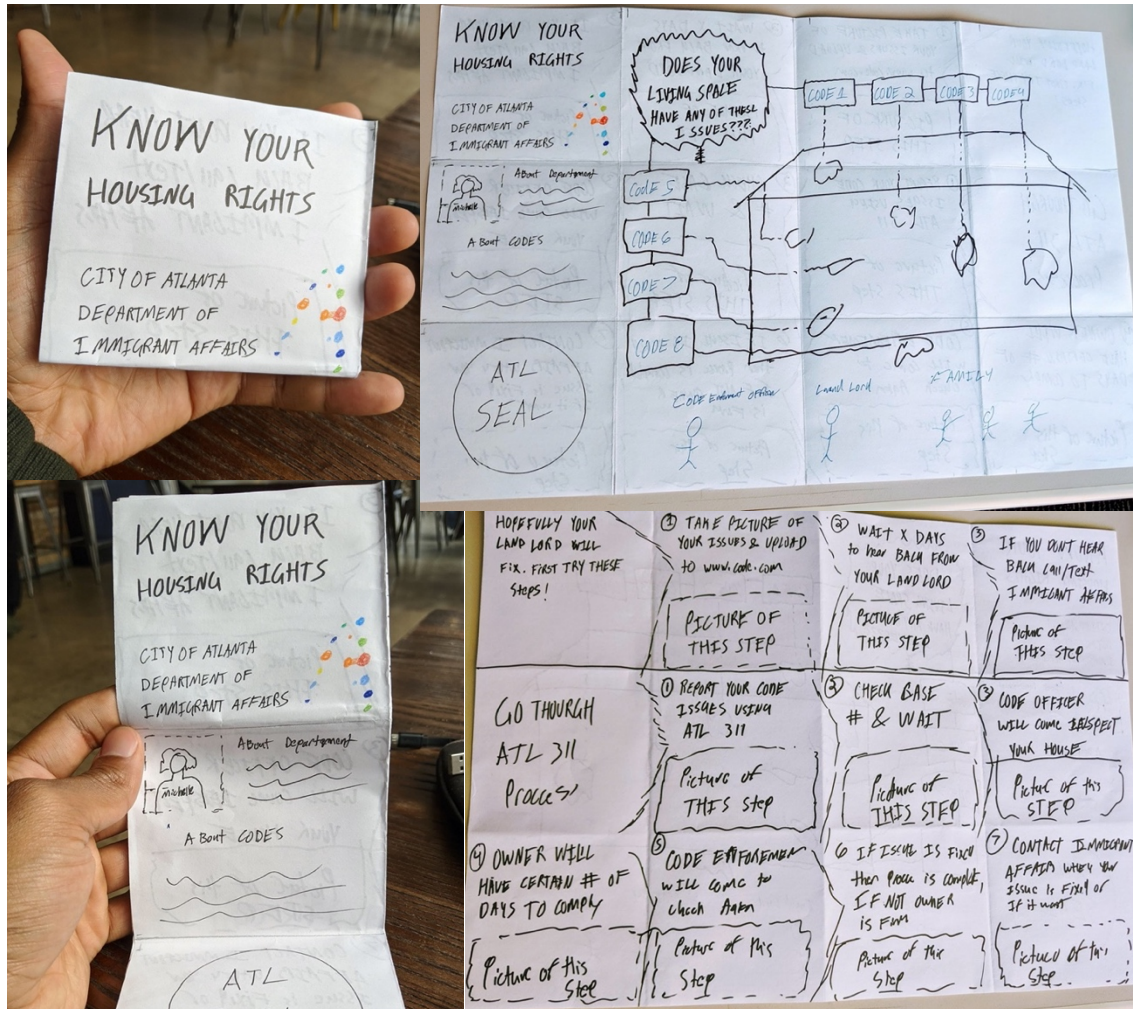 KNOW YOUR
HOUSING RIGHTS
CITY OF ATLANTA
DEPARTMENT OF
IMMIGRANT AFFAIRS
KNOW YOUR
HOUSING RIGHTS
CITY OF ATLANTA
DEPARTMENT OF
IMMIGRANT AFFAIRS
michelle
About Departement
About CODES
ATL
SEAL
DOES YOUR
LIVING SPACE
HAVE ANY OF THESE
ISSUES???
CODE 1
CODE 2
CODE 3
CODE 4
CODE 5
CODE 6
CODE 7
CODE 8
CODE officer
Land Lord
FAMILY
KNOW YOUR
HOUSING RIGHTS
CITY OF ATLANTA
DEPARTMENT OF
IMMIGRANT AFFAIRS
michelle
About Departement
About CODES
ATL
HOPEFULLY YOUR
LAND LORD WILL
FIX. FIRST TRY THESE
STEPS!
① TAKE PICTURE OF
YOUR ISSUES & UPLOAD
to www.code.com
PICTURE OF
THIS STEP
② WAIT X DAYS
to hear BACK FROM
YOUR LANDLORD
PICTURE OF
THIS STEP
③ IF YOU DONT HEAR
BACK Call/Text
IMMIGRANT AFFAIRS
Picture of
THIS STEP
GO THOURGH
ATL 311
Process
① REPORT YOUR CODE
ISSUES USING
ATL 311
Picture of
THIS STEP
② CHECK
# & WAIT
Picture of
THIS STEP
③ CODE OFFICER
WILL COME INSPECT
YOUR HOUSE
Picture of this
STEP
④ OWNER WILL
HAVE CERTAIN # OF
DAYS TO COMPLY
Picture of this
Step
⑤ CODE
WILL COME to
check
Picture of this
Step
6 IF ISSUE IS FIXED
then is complet,
IF NOT OWNER
IS
Picture of this
Step
⑦ CONTACT IMMIGRANT
AFFAIR WHEN your
Issue is Fixed or
If it
Picture of this
Step